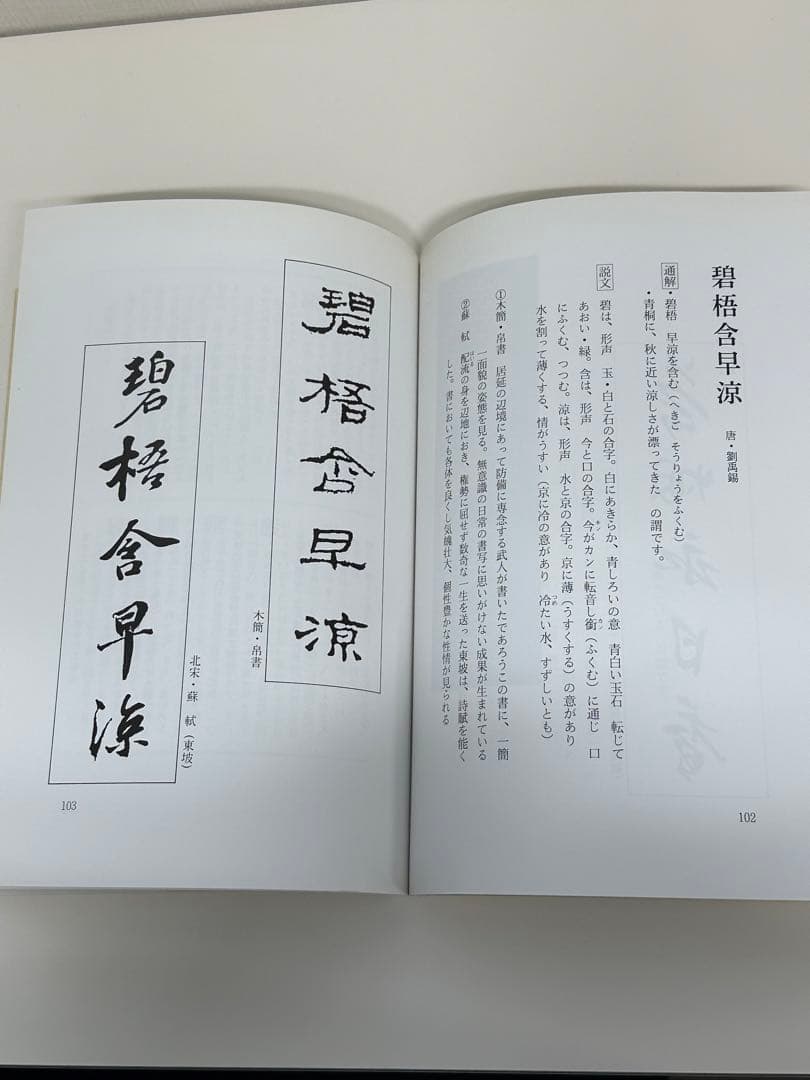 碧梧含早涼
唐・劉禹錫
通解・碧梧　早涼を含む（へきご　そうりょうをふくむ）
・青桐に、秋に近い涼しさが漂ってきた　の謂です。
説文　碧は、形声　玉・白と石の合字。白にあきらか、青しろいの意　青白い玉石　転じて
あおい・緑。含は、形声　今と口の合字。今がカンに転音し銜（ふくむ）に通じ　口
にふくむ、つつむ。涼は、形声　水と京の合字。京に薄（うすくする）の意があり
水を割って薄くする、情がうすい（京に冷の意があり　冷たい水、すずしいとも）
①木簡・帛書　居延の辺境にあって防備に専念する武人が書いたであろうこの書に、一簡
一面貌の姿態を見る。無意識の日常の書写に思いがけない成果が生まれている
②蘇　軾　配流の身を辺地におき、権勢に屈せず数奇な一生を送った東坡は、詩賦を能く
した。書においても各体を良くし気魄壮大、個性豊かな性情が見られる
102
碧梧含早涼
木簡・帛書
碧梧含早涼
北宋・蘇　軾（東坡）
103